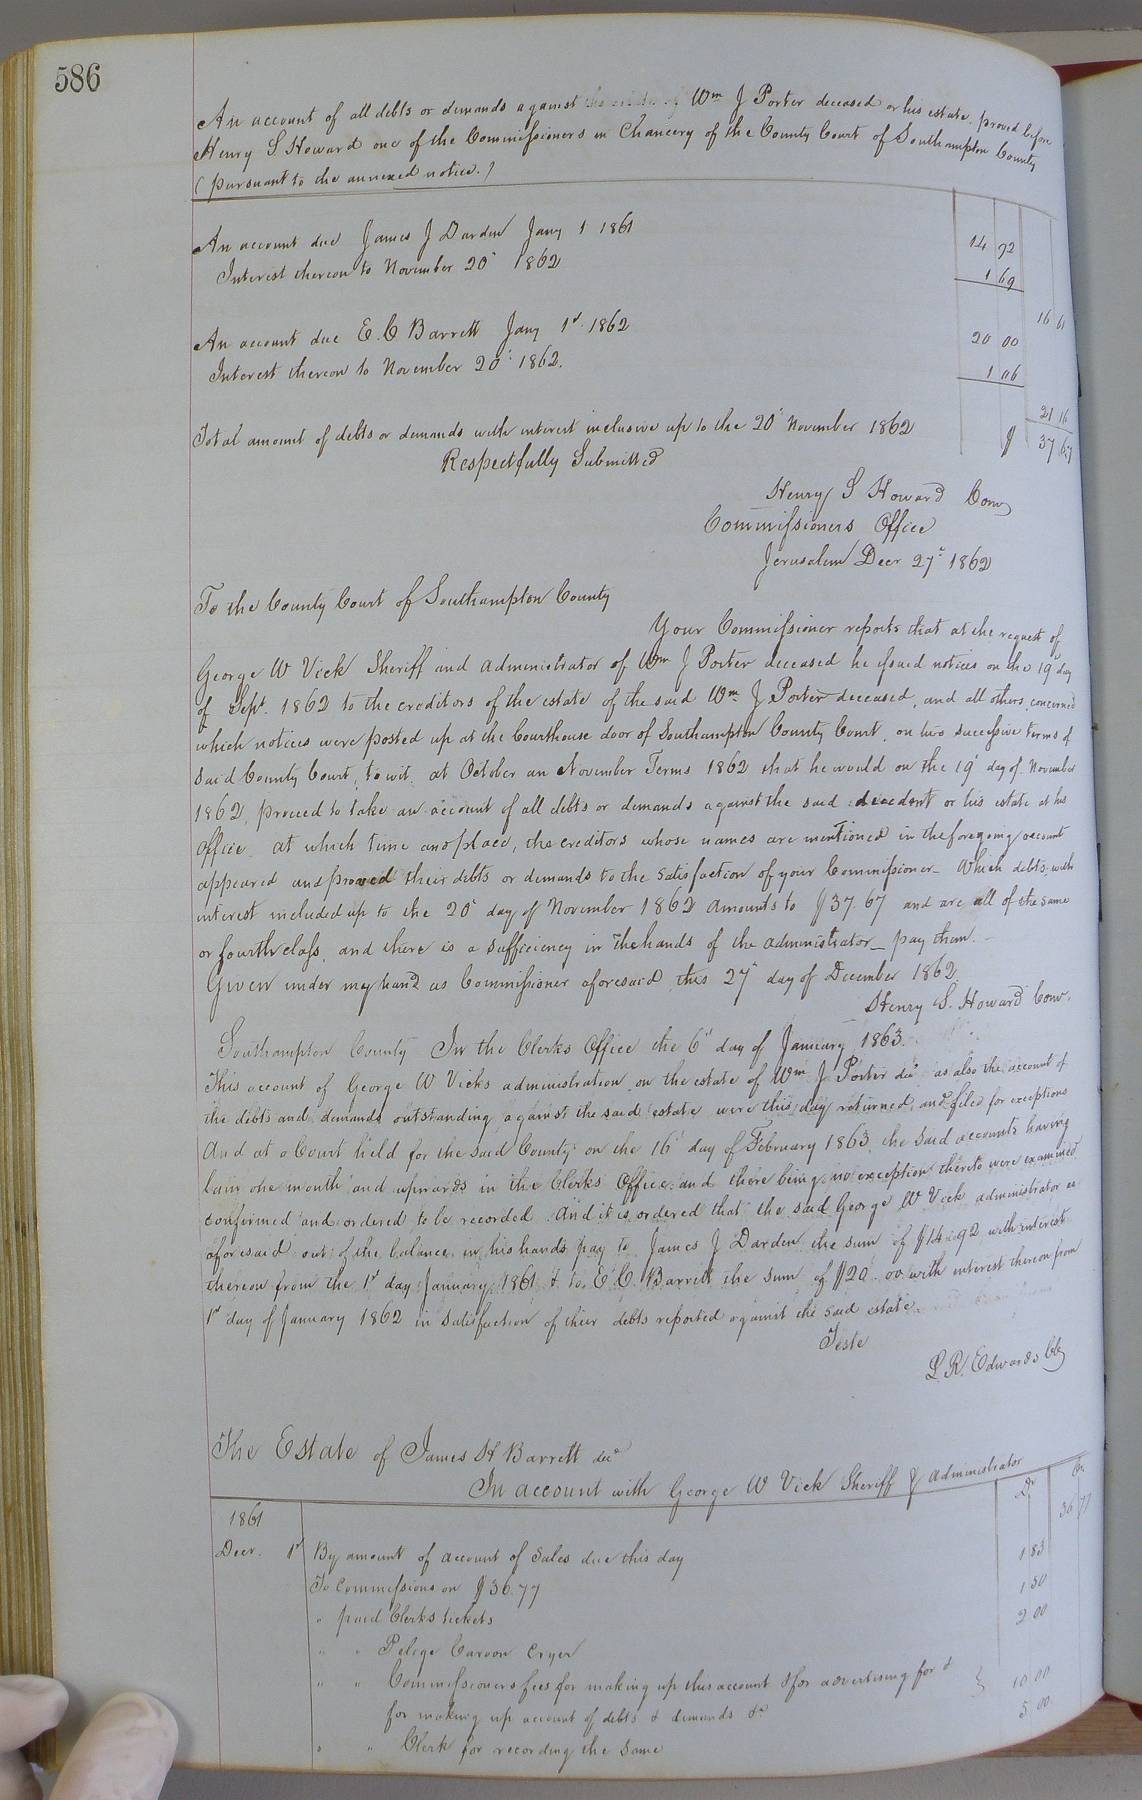 586
An account of all debts or demands against the estate of Wm J Porter deceased or his estate proved before
Henry S Howard one of the Commissioners in Chancery of the County Court of Southampton County
(pursuant to the annexed notice.)
An account due James J Darden Jany 1 1861 14 92
Interest thereon to November 20th 1862 1 69
16 61
An account due E. C Barrett Jany 1st 1862 20 00
Interest thereon to November 20th 1862. 1 06
21 16
Total amount of debts or demands with interest inclusive up to the 20th November 1862 $ 37 67
Respectfully Submitted
Henry S Howard Comr
Commissioners Office
Jerusalem Decr 27th 1862
To the County Court of Southampton County
Your Commissioner reports that at the request of
George W Vick Sheriff and administrator of Wm J Porter deceased he issued notices on the 19th day
of Sept. 1862 to the creditors of the estate of the said Wm J Porter deceased, and all others concerned
which notices were posted up at the Courthouse door of Southampton County Court, on two successive terms of
said County Court, to wit, at October an November Terms 1862 that he would on the 19th day of November
1862, proceed to take an account of all debts or demands against the said decedent or his estate at his
office at which time and place, the creditors whose names are mentioned in the foregoing account
appeared and proved their debts or demands to the satisfaction of your Commissioner – Which debts, with
interest included up to the 20th day of November 1862 amounts to $37.67 and are all of the same
or fourth class, and there is a sufficiency in the hands of the administrator – pay them. –
Given under my hand as Commissioner aforesaid this 27th day of December 1862
Henry S. Howard Comr.
Southampton County In the Clerks Office the 6th day of January 1863.
This account of George W Vicks administration on the estate of Wm J Porter decd as also the account of
the debts and demands outstanding against the said estate were this day returned and filed for exceptions
And at a Court held for the said County on the 16th day of February 1863, the said accounts having
lain one month and upwards in the Clerks Office and there being no exception thereto were examined
confirmed and ordered to be recorded. And it is ordered that the said George W Vick administrator as
aforesaid out of the balance in his hands pay to James J Darden the sum of $14.92 with interest
thereon from the 1st day January 1861 & to E C. Barrett the sum of $20.00 with interest thereon from
1st day of January 1862 in satisfaction of their debts reported against the said estate
Teste
L. R. Edwards Clk
The Estate of James H Barrett decd
In account with George W Vick Sheriff & administrator
Dr Cr
1861
Decr. 1st By amount of account of Sales due this day 36 77
To Commissions on $36.77 1 83
" paid Clerks tickets 1 50
" " Pelige Carson Cryer 2 00
" " Commissioners fees for making up this account & for advertising for &
for making up account of debts & demands &c 10 00
" " Clerk for recording the same 5 00